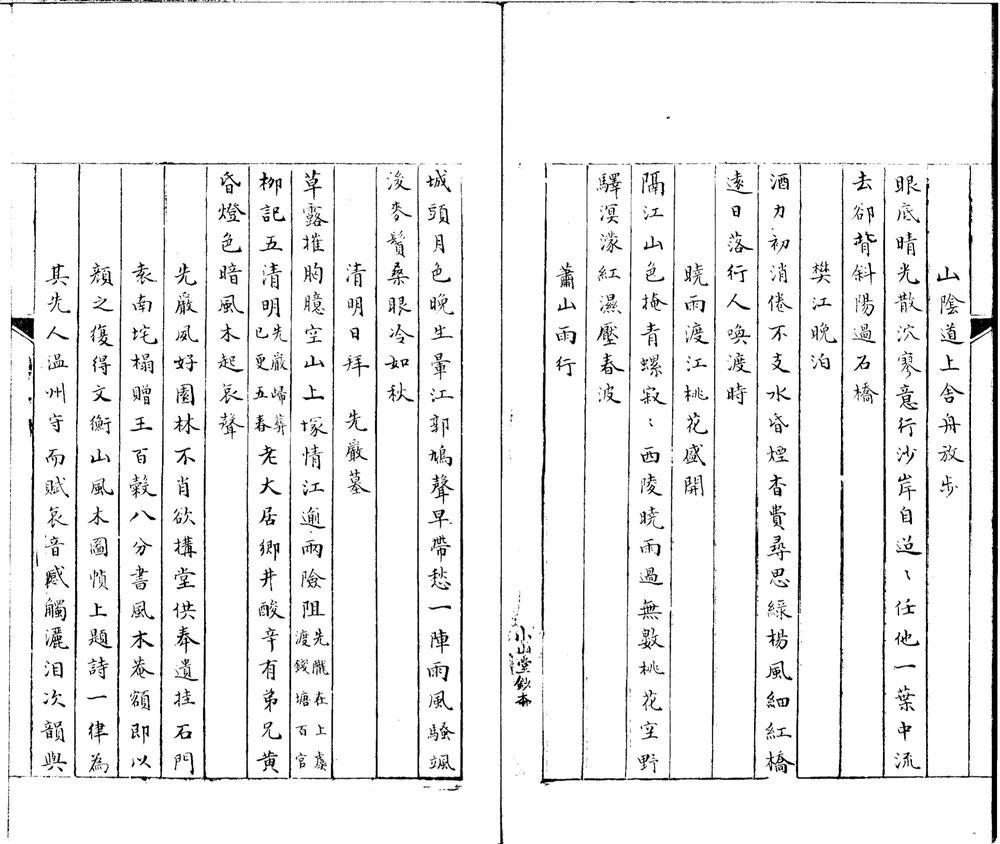 山陰道上舍舟放步
眼底晴光散泬寥意行沙岸自迢〻任他一葉中流
去卻背斜陽過石橋
樊江晚泊
酒力初消倦不支水昏煙杳費尋思綠楊風細紅橋
遠日落行人喚渡時
曉雨渡江桃花盛開
隔江山色掩青螺寂〻西陵曉雨過無數桃花空野
驛溟濛紅濕壓春波
蕭山雨行
小山堂鈔本
城頭月色晚生暈江郭鳩聲早帶愁一陣雨風騷颯
後麥鬢桑眼冷如秋
清明日拜　先嚴墓
草露摧胸臆空山上塚情江逾兩險阻先隴在上虞渡錢塘百官
柳記五清明先嚴歸葬已更五春老大居鄉井酸辛有弟兄黄
昏燈色暗風木起哀聲
先嚴夙好園林不肖欲搆堂供奉遺挂石門
袁南垞榻贈王百榖八分書風木菴額即以
顏之復得文衡山風木圖幀上題詩一律為
其先人温州守而賦哀音慼觸灑泪次韻與